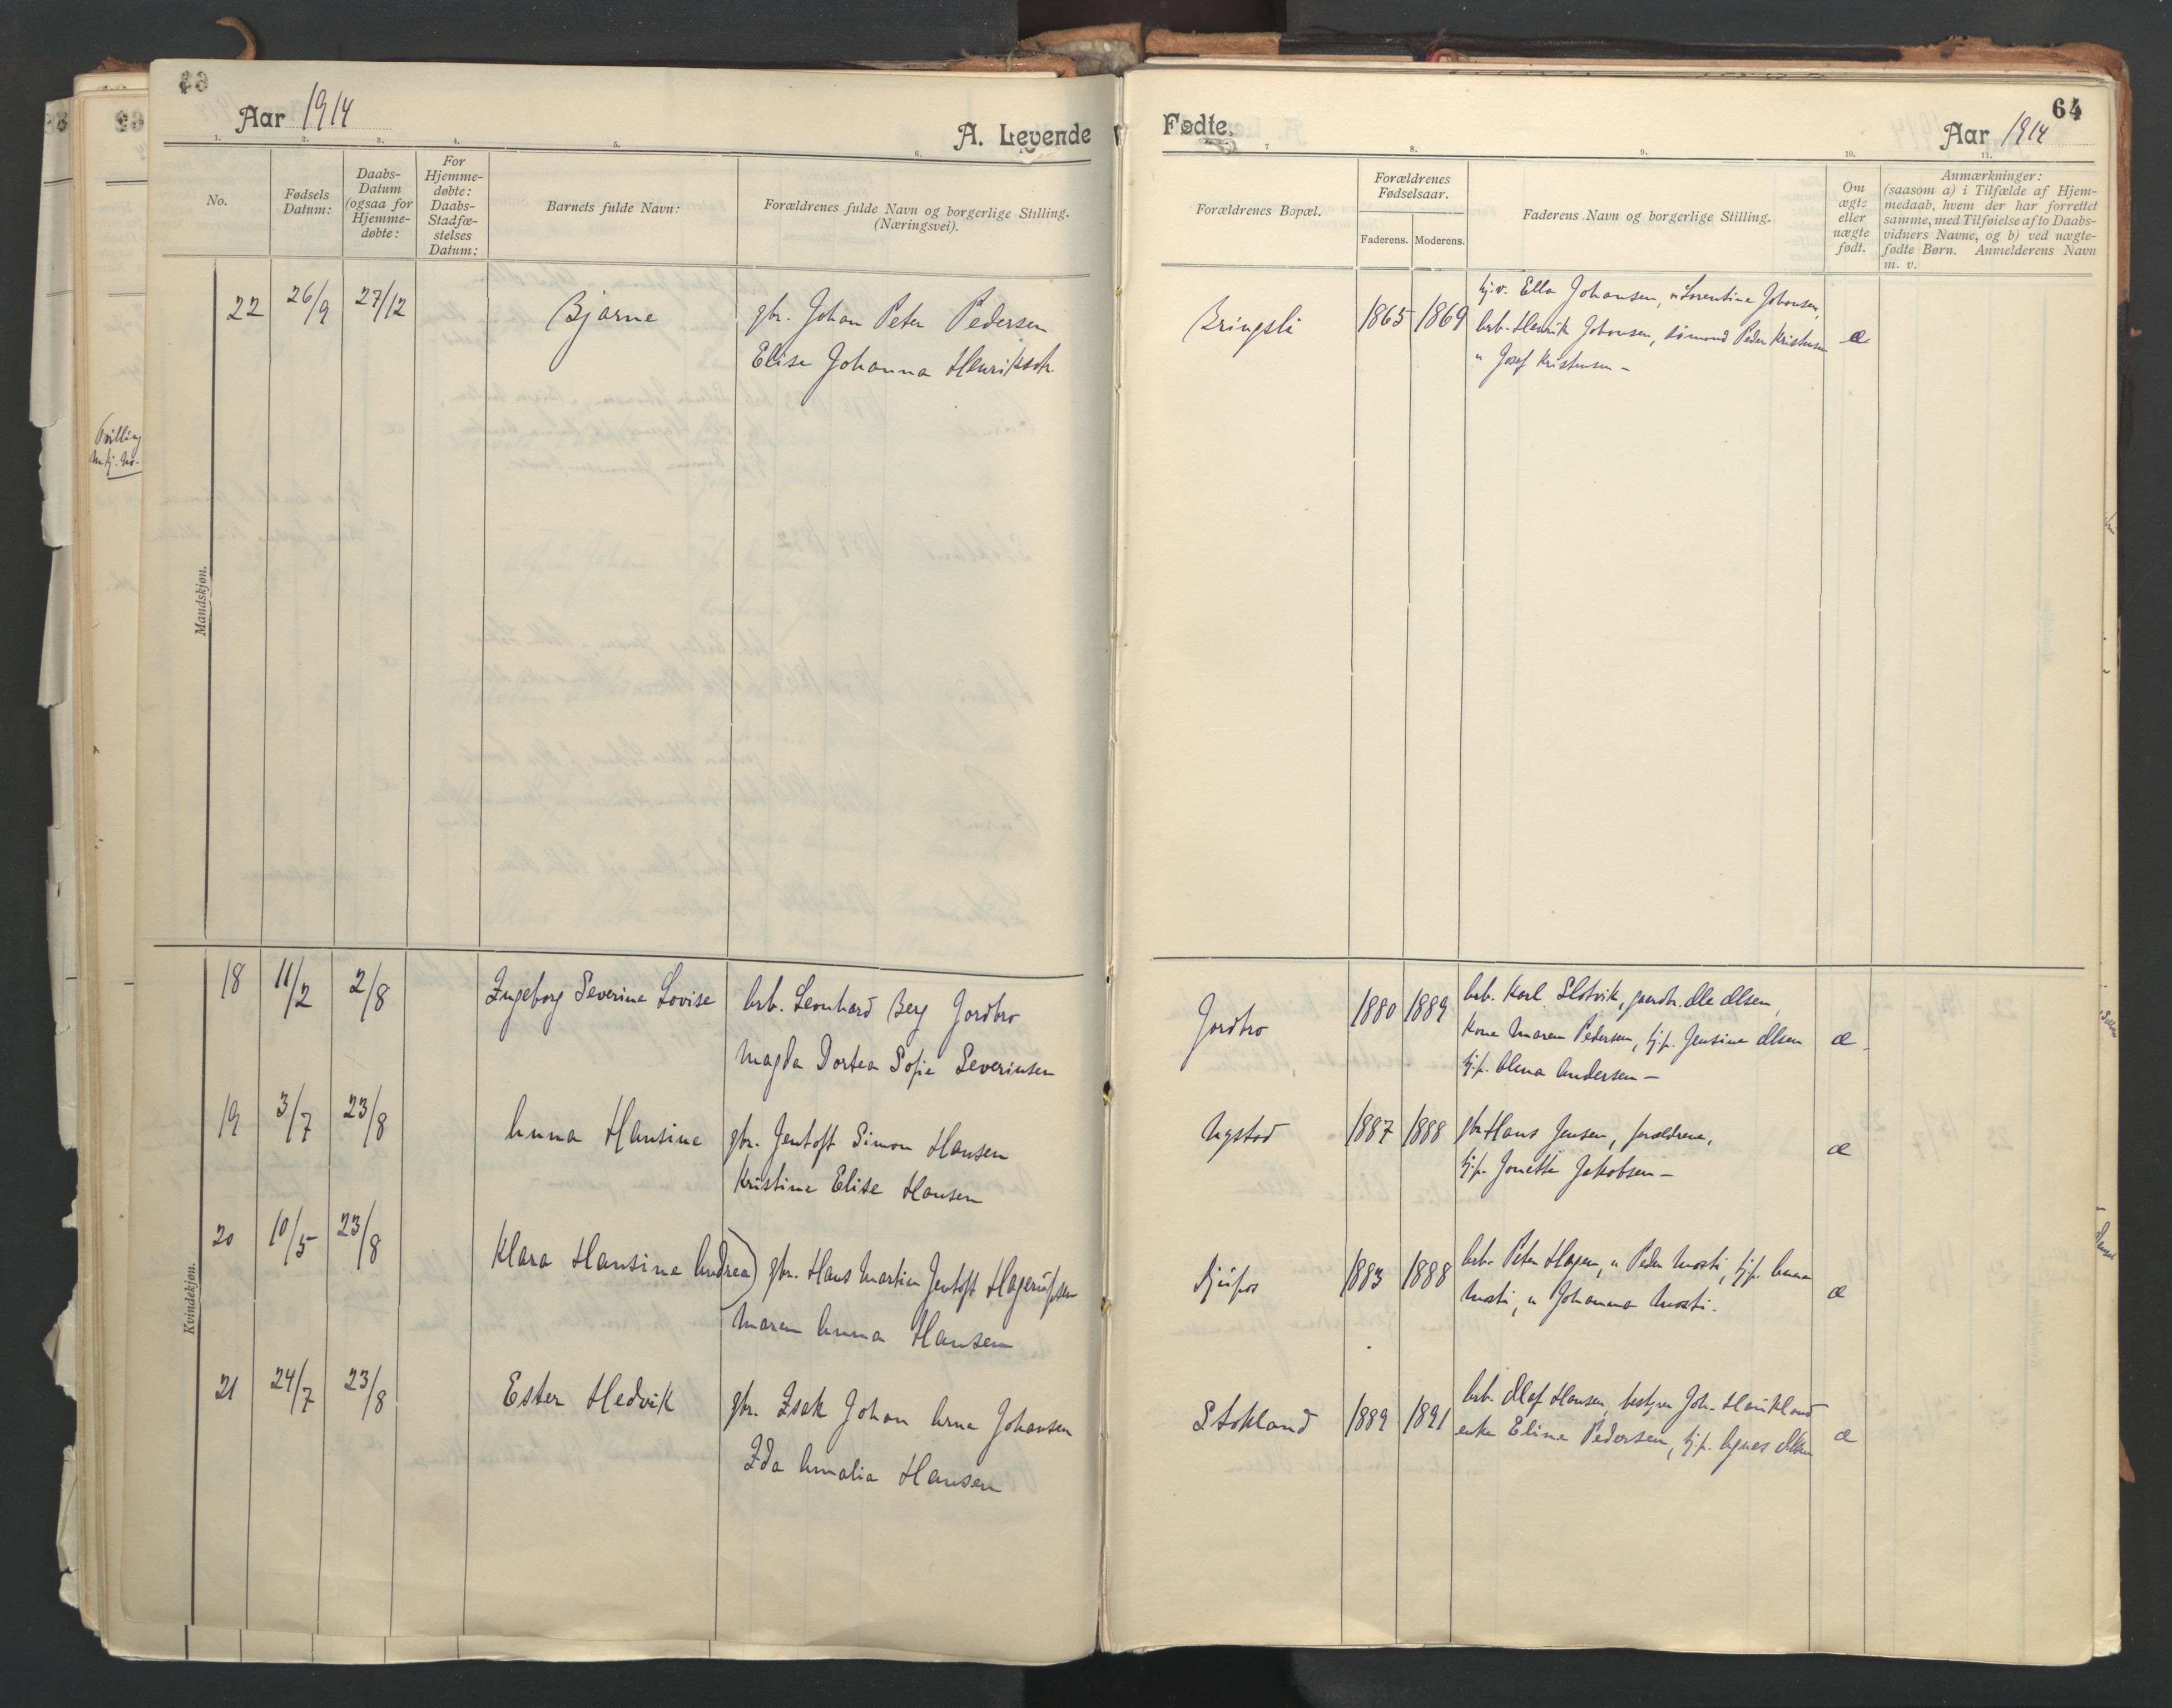 Aar 1914
A. Levende
1. 2. 3. 4. 5. 6.
No.
Fødsels Datum:
Daabs-
Datum
(ogsaa for
Hjemme-
døbte:
For
Hjemme-
døbte:
Daabs-
Stadfæ-
stelses
Datum:
Barnets fulde Navn:
Forældrenes fulde Navn og borgerlige Stilling.
(Næringsvei).
Mandskjøn.
22 26/9 27/12 Bjarne gbr. Johan Peter Pedersen
Elise Johanna Henriksdt.
Kvindekjøn.
18 11/2 2/8 Ingeborg Severine Lovise arb. Leonhard Berg Jordbro
Magda Dortea Sofie Severinsen
19 3/7 23/8 Anna Hansine gbr. Jentoft Simon Hansen
Kristine Elise Hansen
20 10/5 23/8 Klara Hansine Andrea) gbr. Hans Martin Jentoft Hagerupsen
Maren Anna Hansen
21 24/7 23/8 Ester Hedvik gbr. Isak Johan Arne Johansen
Ida Amalia Hansen
Tvilling
Fødte.
64
Aar 1914
7 8. 9. 10. 11.
Forældrenes Bopæl.
Forældrenes
Fødselsaar.
Faderens. Moderens.
Faderens Navn og borgerlige Stilling.
Om
ægte
eller
uægte
født.
Anmærkninger:
(saasom a) i Tilfælde af Hjem-
medaab, hvem der har forrettet
samme, med Tilføielse af to Daabs-
vidners Navne, og b) ved uægte-
fødte Børn. Anmelderens Navn
m. v.
Bringsli 1865 1869 tj.v. Ella Johansen, " Lorentine Johansen,
arb. Henrik Johansen, sømand Peder Kristensen æ
" Josef Kristensen –
Jordbro 1880 1889 arb. Karl Slotvik, gaardbr. Ole Olsen,
Kone Maren Pedersen, tj.p. Jensine Olsen æ
tj.p. Alena Andersen –
Nystad 1887 1888 gbr Hans Jensen, forældrene,
tj.p. Jonette Jakobsen – æ
Djupos 1883 1888 arb. Peter Hagen, " Peder Mosti, tj.p. Anna
Mosti, " Johanna Mosti. æ
Stokland 1889 1891 arb. Olaf Hansen, bestyrer Joh. Haukland
enke Eline Pedersen, tj.p. Agnes Olsen æ